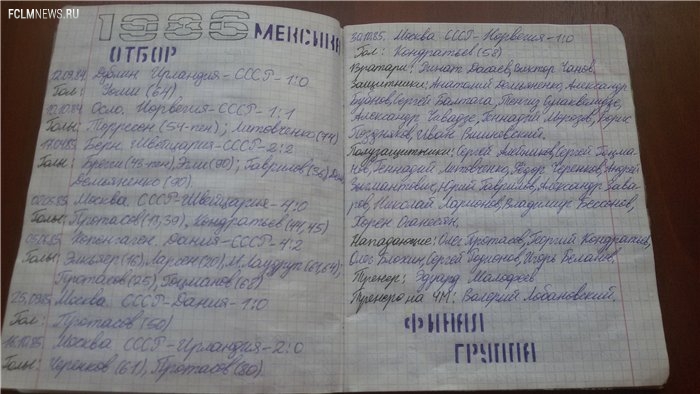 FCLMNEWS.RU
1986 МЕКСИКА
ОТБОР
12.09.84. Дублин Ирландия-СССР-1:0
Гол: Уолш (64),
10.10.84. Осло. Норвегия-СССР-1:1
Голы: (54-пен); Литовченко (74)
17.04.85. Берн. Швейцария-СССР-2:2
Голы: Брегги (43-пен), Эгли (90); Гаврилов (36),
Демьяненко (90).
02.05.85. Москва СССР-Швейцария-4:0
Голы: Протасов (19,39), Кондратьев (44,45)
05.06.85. Копенгаген. Дания-СССР-4:2
Голы: Элькьер (16), Ларсен (20), М. Лаудруп (61,64);
Протасов (25), Гоцманов (68)
25.09.85. Москва СССР-Дания-1:0
Гол: Протасов (50)
16.10.85. Москва СССР-Ирландия-2:0
Голы: Черенков (61), Протасов (90).
30.10.85. Москва СССР-Норвегия-1:0
Гол: Кондратьев (58)
Вратари: Ринат Дасаев, Виктор Чанов,
Защитники: Анатолий Демьяненко, Александр
Бубнов, Сергей Балтача, Тенгиз Сулаквелидзе,
Александр Чивадзе, Геннадий Морозов, Борис
Поздняков, Иван Вишневский.
Полузащитники: Сергей Алейников, Сергей Гоцма-
нов, Геннадий Литовченко, Федор Черенков, Андрей
Зыгмантович, Юрий Гаврилов, Александр Зава-
ров, Николай Ларионов, Владимир Бессонов,
Хорен Оганесян,
Нападающие: Олег Протасов, Георгий Кондратьев,
Олег Блохин, Сергей Родионов, Игорь Беланов.
Тренер: Эдуард Малофеев
Тренер на ЧМ: Валерий Лобановский.
ФИНАЛ
ГРУППА